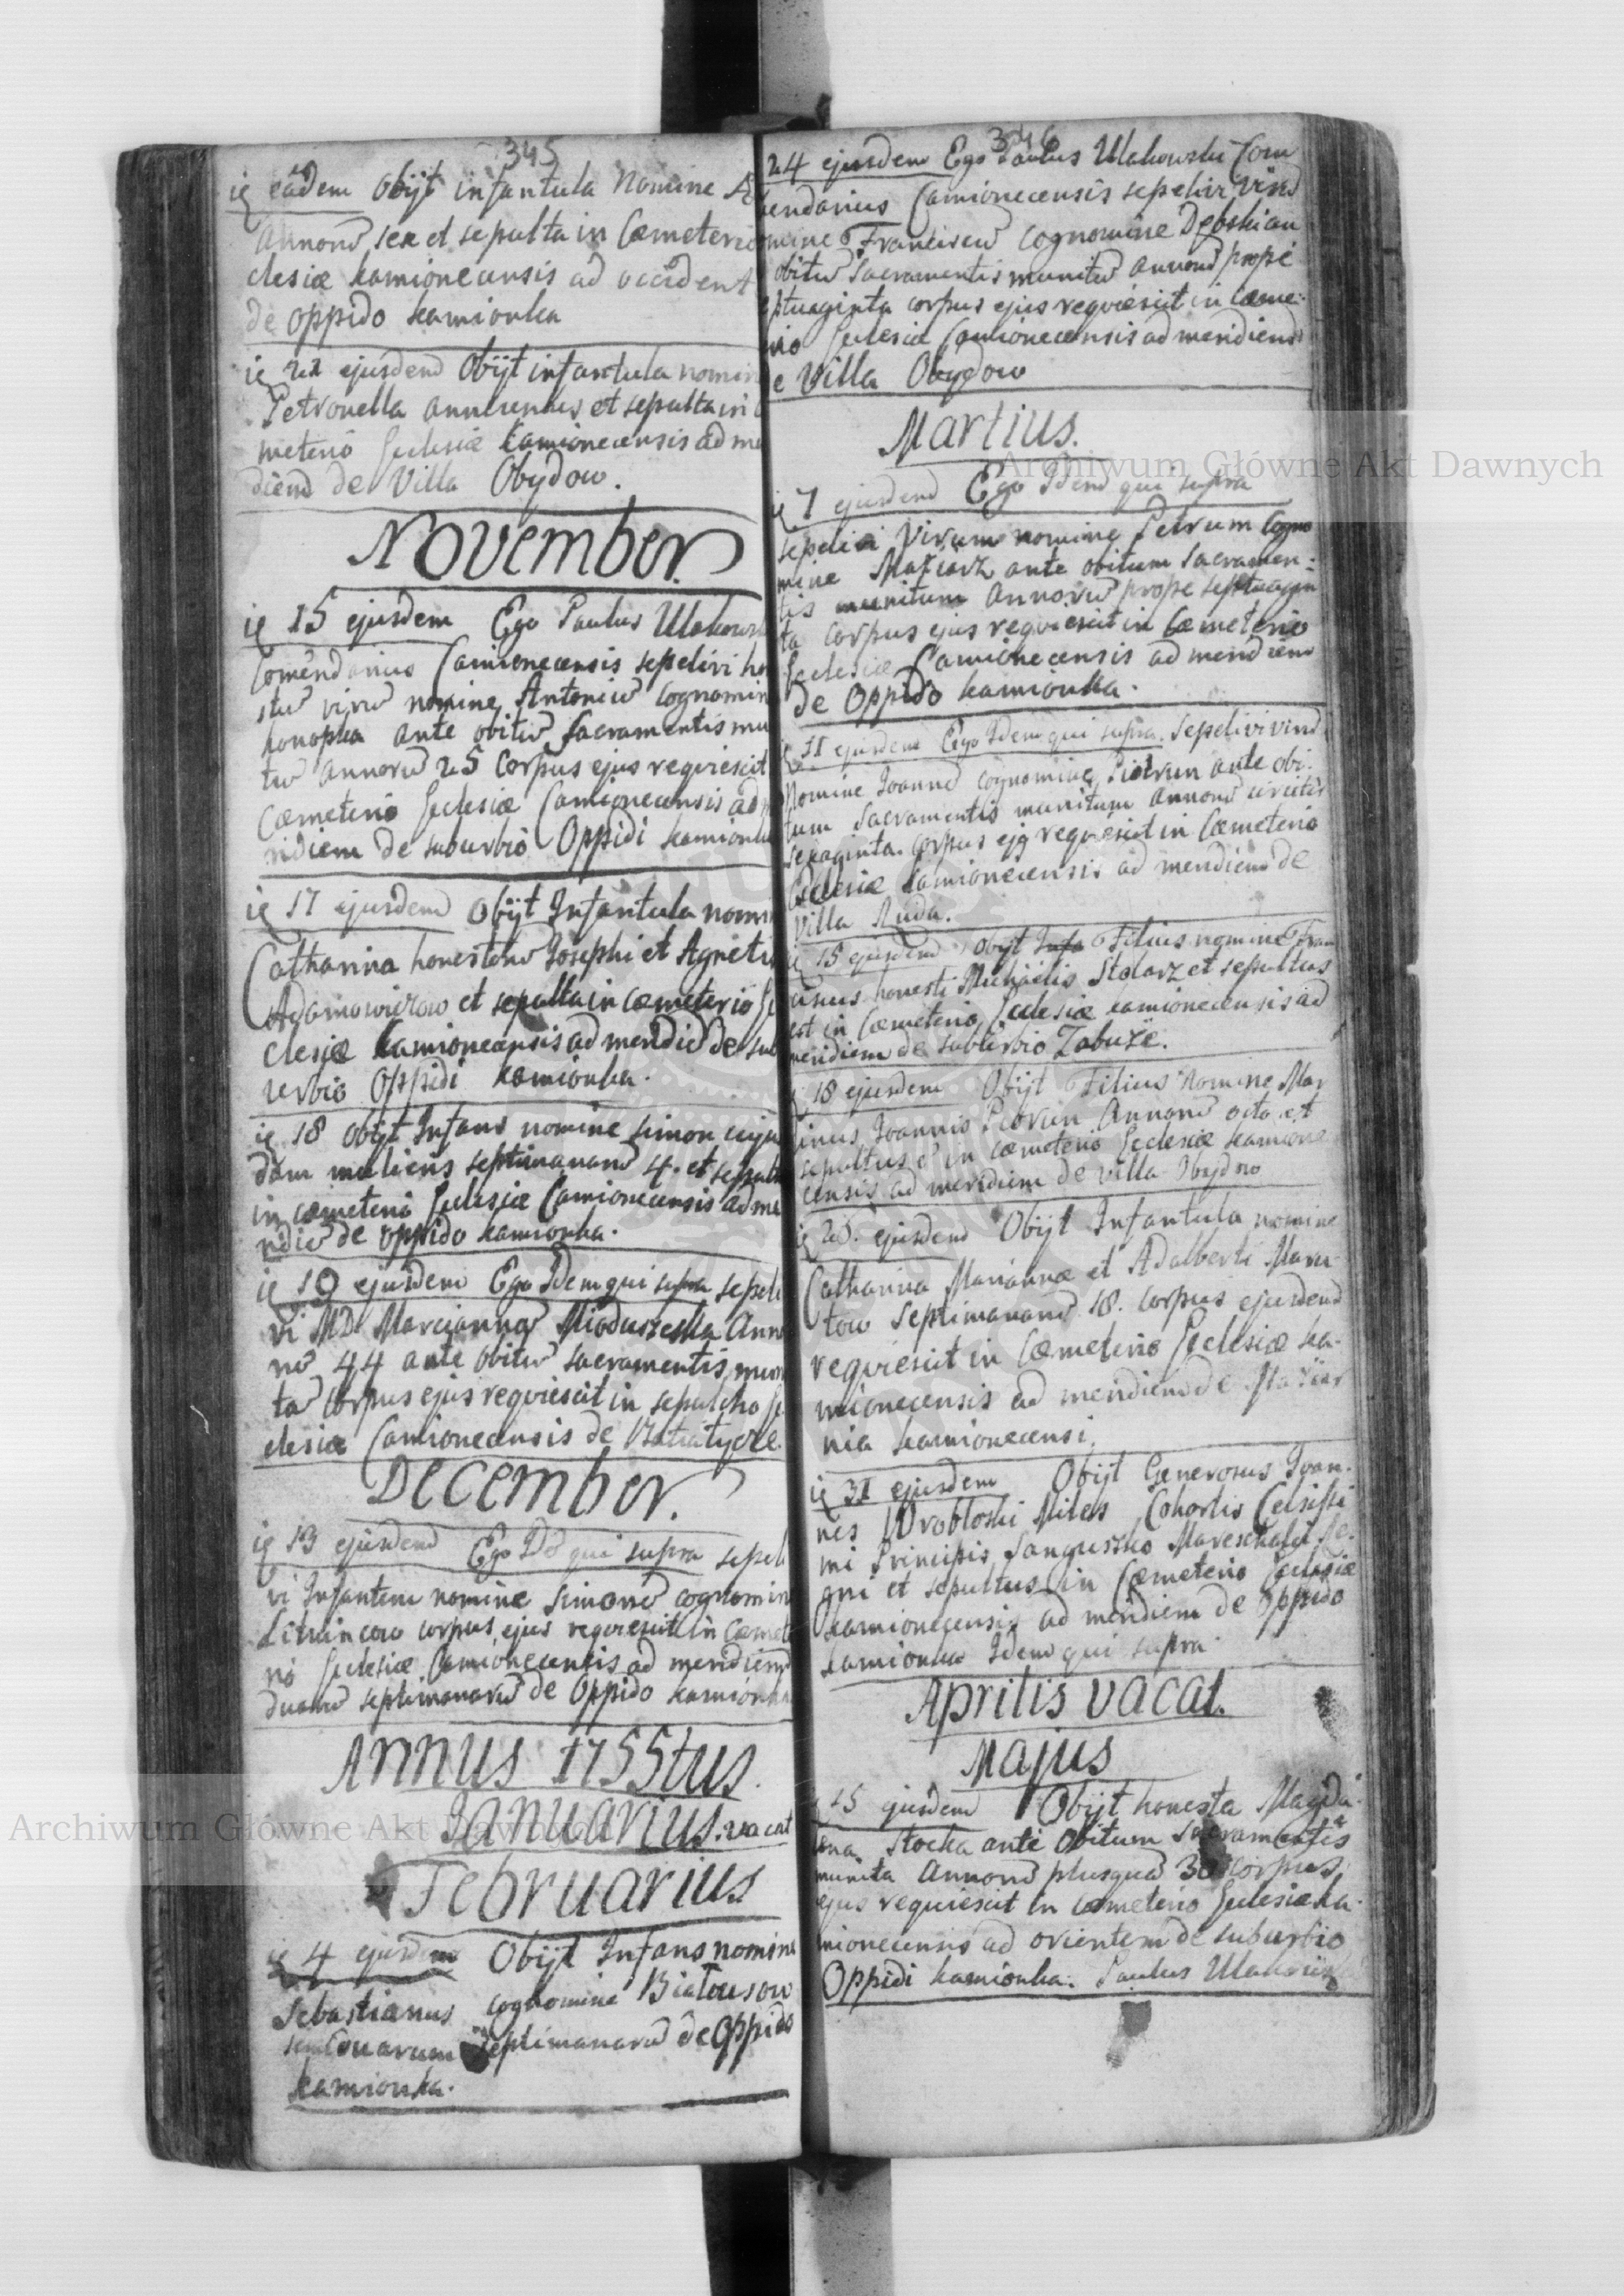 345
Die eâdem Obijt infantula Nomine
Annorũ sex et sepulta in Cæmeterio
clesiæ kamionecensis ad occident
de oppido kamionka
Die 22 ejusdem Obijt infantula nomin
Petronella et sepulta in
meterio Ecclesiæ kamionecensis ad me
diem de Villa Obydow.
November.
Die 15 ejusdem Ego Paulus Ulakowsk
Comendarius Camionecensis sepelivi ho
stũ virũ nomine Antoniũ cognomin
konopka ante obitũ Sacramentis mu
tũ annorũ 25 Corpus ejus requiescit
Cæmeterio Ecclesiæ Camionecensis ad
ridiem de suburbio Oppidi kamionka
Die 17 ejusdem Obijt Infantula nomi
Catharina honestorũ Josephi et Agneti
Adamowiczow et sepulta in cæmeterio Ec
clesiæ kamionecensis ad meridiẽ de sub
urbio Oppidi kamionka.
Die 18 obijt Infans nomine Simon cuju
dam mulieris septimanarũ 4. et sepult
in cæmeterio Ecclesiæ Camionecensis ad me
ridiẽ de oppido kamionka.
Die 19 ejusdem Ego Idem qui supra sepeli
vi MD Marciannã Anno
rũ 44 ante obitũ sacramentis muni
tã Corpus ejus requiescit in sepulchro Ec
clesiæ Camionecensis de
December.
Die 13 ejusdem Ego qui supra sepeli
vi Infantem nomine Simonẽ cognomin
corpus ejus requiescit in Cæmet
rio Ecclesiæ Camionecensis ad meridiem
duarũ septimanarũ de Oppido kamionka
Annus 1755tus.
Januarius. vacat
Februarius
Die 4 ejusdem Obijt Infans nomine
Sebastianus cognomine
septimanarũ de Oppido
kamionka.
346
24 ejusdem Ego Paulus Ulakowski Com
endarius Camionecensis sepelivi virũ
omine Franciscũ cognomine
obitũ Sacramentis munitũ annorũ prope
eptuaginta corpus ejus requiescit in Cæme-
rio Ecclesiæ Camionecensis ad meridiem
de Villa Obydow
Martius.
Die 7 ejusdem Ego Idem qui supra
sepelivi Virum nomine Petrum Cogno
mine Maziarz ante obitum Sacramen-
tis munitum Annorũ prope septuagin
ta Corpus ejus requiescit in Cæmeterio
Ecclesiæ Camionecensis ad meridiem
de Oppido kamionka.
Die 11 ejusdem Ego Idem qui supra sepelivi virũ
Nomine Joannẽ cognomine Piotrun ante obi-
tum Sacramentis munitum annorũ circiter
sexaginta. Corpus ejus requiescit in Cæmeterio
Ecclesiæ kamionecensis ad meridiem de
Villa Ruda.
Die 15 ejusdem Obijt Filius nomine Fran
ciscus honesti Michaelis Stolarz et sepultus
est in Cæmeterio Ecclesiæ kamionecensis ad
meridiem de suburbio Zabuże.
18 ejusdem Obijt Filius Nomine Mar
tinus Joannis Piorun Annorũ octo et
sepultus ẽ in cæmeterio Ecclesiæ kamione
censis ad meridiem de villa Obydow
Die 25. ejusdem Obijt Infantula nomine
Catharina Mariannæ et Adalberti
Septimanarũ 18. Corpus ejusdem
requiescit in Cæmeterio Ecclesiæ ka-
mionecensis ad meridiem de
nia kamionecensi.
Die 31 ejusdem Obijt Generosus Joan-
nes Wrobloski Miles Cohortis Celsissi
mi Principis Sanguszko Mareschalci Re-
gni et sepultus in Cæmeterio Ecclesiæ
kamionecensis ad meridiem de Oppido
kamionka Idem qui supra.
Aprilis vacat.
Majus
15 ejusdem Obijt honesta Magda-
lena Stocka ante Obitum Sacramentis
munita Annorũ plusquã 30 corpus
ejus requiescit in cæmeterio Ecclesiæ ka-
mionecensis ad orientem de suburbio
Oppidi kamionka. Paulus
Archiwum Główne Akt Dawnych
Archiwum Główne Akt Dawnych